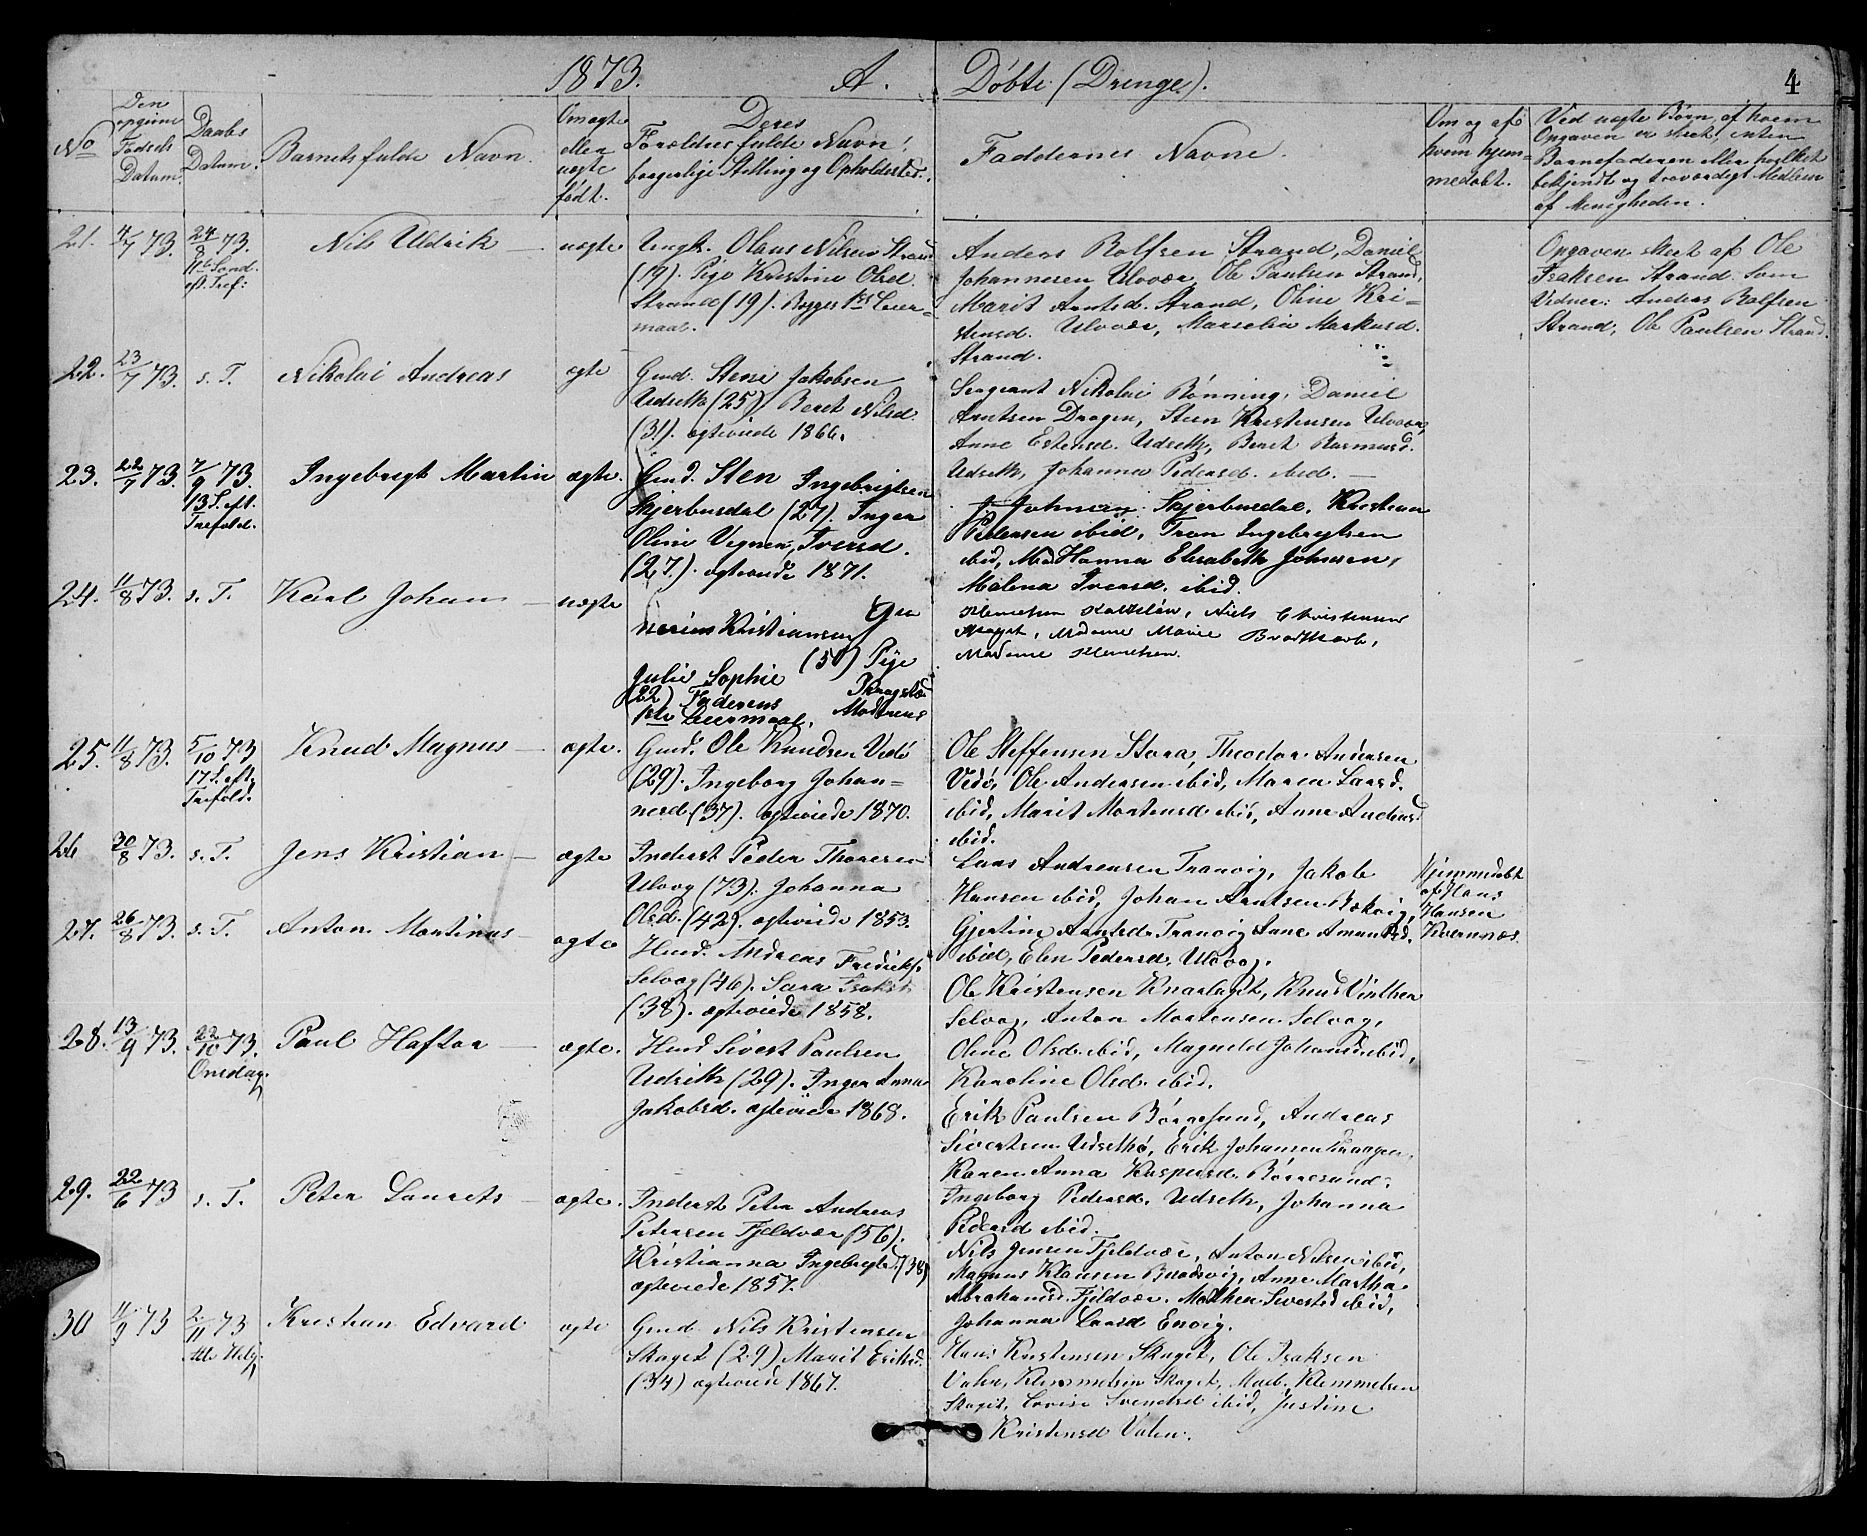 1873. A. Døbte (Drenge). 4
No
Den opgivne Fødsels Datum.
Daabs Datum.
Barnets fulde Navn.
Om ægte eller uægte født.
Deres Forældres fulde Navn, borgerlige Stilling og Opholdssted.
Faddernes Navne.
Om og af hvem hjemmedøbt.
Ved uægte Børn, af hvem Opgaven er skeet, enten Barnefaderen eller hvilket bekjendt og troværdigt Medlem af Menigheden.
21. 4/7 73. 24/8 73. 11te Sønd. eft. Tref: Nils Uldrik — uægte
Ungk. Olaus Nilsen Strand
(19). Pige Kristine Olsd.
Strand (19). Begges 1ste Leier-
maal.
Anders Rolfsen Strand, Daniel
Johannesen Ulvær, Ole Paulsen Strand,
Marit Arntsd. Strand, Oline Kri-
stensd. Ulvær, Marselia Markusd.
Strand.
Opgaven skeet af Ole
Isaksen Strand. Som
Vidner: Anders Rolfsen
Strand, Ole Paulsen Strand.
22. 23/7 73. s. T. Nikolai Andreas ægte
Gmd. Steni Jakobsen
Udseth (25). Beret Nilsd.
(31). ægteviede 1866.
Sergeant Nikolai Rønning, Daniel
Arntsen Dragen, Steen Kristensen Ulvær,
Anne Estensd. Udseth, Beret Rasmusd.
Udseth, Johanna Pedersd. ibid. —
23. 22/7 73. 7/9 73. 13 S. eft. Trefold. Ingebrigt Martin ægte.
Gmd. Sten Ingebrigtsen
Skjerbusdal (27). Inger
Oline Vegnen, Iversd.
(27.). ægteviede 1871.
Skjerbusdal, Kristian
Pedersen ibid, Tron Ingebrigtsen
ibid, Md Hanna Elisabeth Johnsen,
Malena Iversd. ibid.
24. 11/8 73. s. T. Karl Johan — uægte
Kristiansen
(50) Pige
Julie Sophie
(22) Faderens Moderens
1ste Leiermaal.
Klemetsen, Niels Christensen
Skaget, Madme Marie
Madame Klemetsen.
25. 11/8 73. 5/10 73 17 S. eft. Trefold. Knud Magnus — ægte.
Gmd. Ole Knudsen Vedø
(29). Ingeborg Johan-
nesd. (37). ægteviede 1870.
Ole Steffensen Storø, Theodor Andersen
Vedø, Ole Andersen ibid, Maren Larsd.
ibid, Marit Mortensd ibid, Anne Andersd
ibid.
26 30/8 73. s. T. Jens Kristian — ægte
Inderst Peder Thoresen
Ulvog (73). Johanna
Olsd. (42). ægteviede 1853.
Lars Andreasen Tranvig, Jakob
Hansen ibid, Johan Arntsen Bækvig,
Gjertine Arntsd. Tranvig, Lane Amundsd.
ibid, Elen Pedersd. Ulvog.
Hjemmedøbt
af Hans
Hansen
Kvernnæs.
27. 26/8 73. s. T. Anton Martinus — ægte
Husmd. Andreas Fredriks.
Selvog (46). Sara Isaksd.
(38). ægteviede 1858.
Ole Kristensen Knarlaget, Knud Vinther
Selvog, Anton Mortensen Selvog,
Oline Olsd. ibid, Magnild Johansd. ibid,
Karoline Olsd. ibid.
28. 13/9 73. 22/10 73. Onsdag. Paul Haftor — ægte.
Husmd Sivert Paulsen
Udseth (29). Inger Anna
Jakobsd. ægteviede 1868.
Erik Paulsen Børøsund, Andreas
Sivertsen Udsethø, Erik Johansen Dragen,
Karen Anna Kaspersd. Børøsund,
Ingeborg Pedersd. Udseth, Johanna
Pedersd ibid.
29. 22/6 73 s. T. Peter Laurets — ægte.
Inderst Peter Andreas
Petersen Fjeldvær (56).
Kristianna Ingebrigtsd. (38)
ægteviede 1857.
Nils Jensen Fjeldvær, Anton Nilsen ibid,
Magnus Klausen Bradvig, Anne Martha
Abrahamsd. Fjeldvær. Mathea Sivertsd ibid,
Johanna Larsd Envig.
30 11/9 73 2/11 73 Alle Helg. Kristian Edvard ægte
Gmd Nils Kristensen
Skaget (29) Marit Eriksd.
(34) ægteviede 1867.
Hans Kristensen Skaget, Ole Isaksen
Valen, Klemmetsen Skaget, Mad. Klemmetsen
Skaget, Lovise Svendsd ibid, Justine
Kristensd Valen.